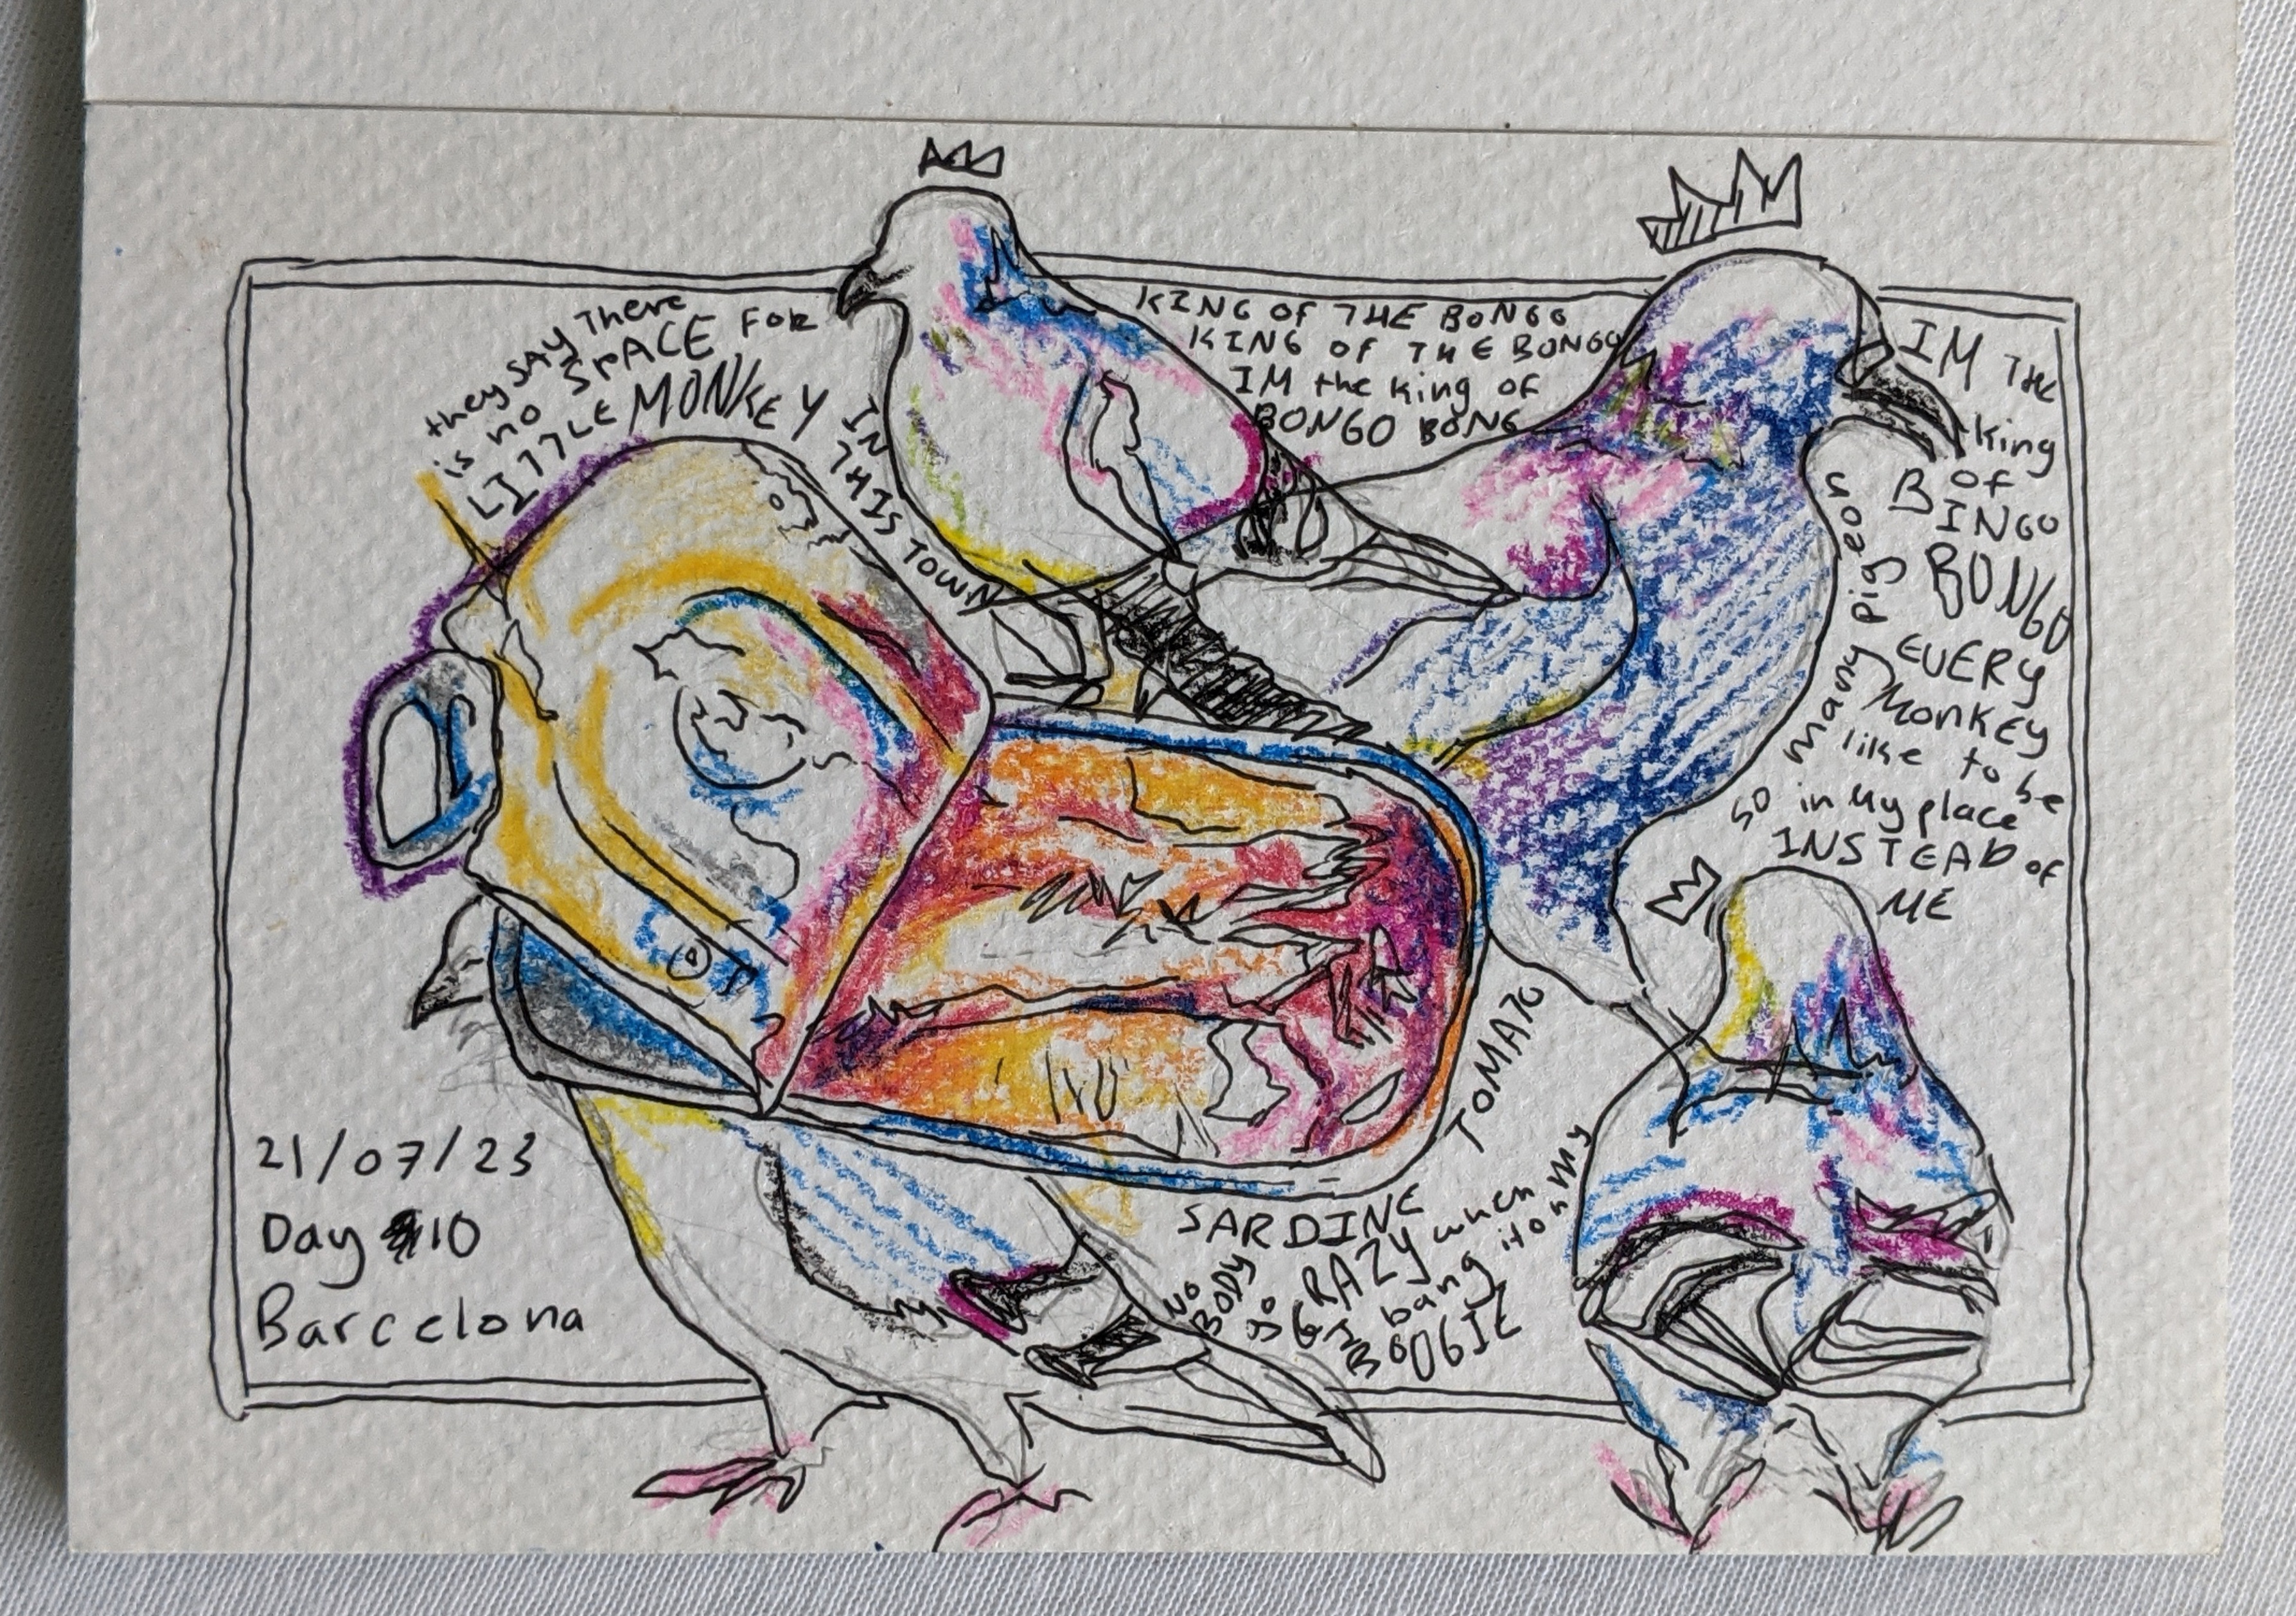 they SAY There
is no SPACE FOR
LITTLE MONKEY IN
THIS TOWN
KING OF THE BONGO
KING OF THE BONGO
IM the king of
BONGO BONG
IM THE
king
OF
BINGO
BONGO
EVERY
MONKEY
like to be
in My place
INSTEAD of
ME
SO many pigeon
TOMATO
SARDINE
NO
BODY
go CRAZY when
I bang it on my
BOOGIE
21/07/23
Day 10
Barcelona